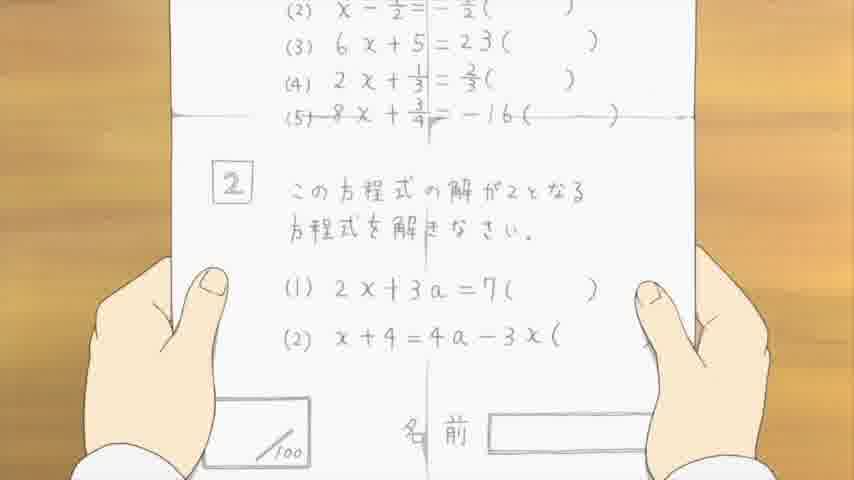 (2) x - 1/2 = - 1/2 ( )
(3) 6x + 5 = 23 ( )
(4) 2x + 1/3 = 2/3 ( )
(5) 8x + 3/4 = -16 ( )
2 この方程式の解が2となる
方程式を解きなさい。
(1) 2x + 3a = 7 ( )
(2) x + 4 = 4a - 3x (
/100 名前